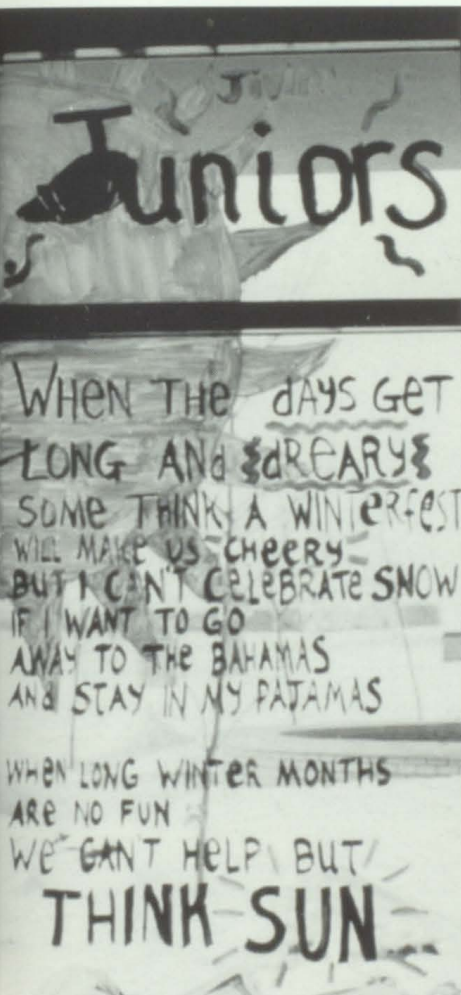 Juniors
WHeN THe dAYS GeT
LONG ANd dReARY
SOMe THINK A WINTeRFeST
WILL MAKE US CHeeRY
BUT I CAN'T CeLeBRATe SNOW
IF I WANT TO GO
AWAY TO THe BAHAMAS
ANd STAY IN MY PAJAMAS
WHeN LONG WINTeR MONTHS
ARe NO FUN
We CAN'T HeLP BUT
THINK SUN...